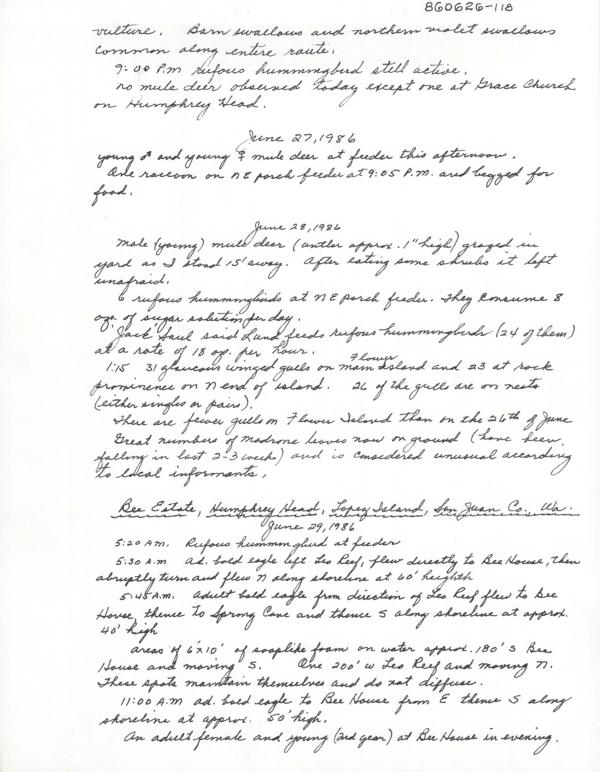 860626-118
vulture. Barn swallows and northern violet swallows
common along entire route.
9:00 P.m rufous hummingbird still active.
no mule deer observed today except one at Grace Church
on Humphrey Head.
June 27, 1986
young ♂ and young ♀ mule deer at feeder this afternoon.
One raccoon on NE porch feeder at 9:05 P.M. and begged for
food.
June 28, 1986
male (young) mule deer (antler approx. 1" high) grazed in
yard as I stood 15' away. After eating some shrubs it left
unafraid.
6 rufous hummingbirds at NE porch feeder. They consume 8
ozs. of sugar solution per day.
'Jack' Saul said Lund feeds rufous hummingbirds (24 of them)
at a rate of 18 oz. per hour.
1:15 31 glaucous winged gulls on main Flower Island and 23 at rock
prominence on N end of island. 26 of the gulls are on nests
(either singles or pairs).
There are fewer gulls on Flower Island than on the 26th of June
Great numbers of madrone leaves now on ground (have been
falling in last 2-3 weeks) and is considered unusual according
to local informants.
Bee Estate, Humphrey Head, Lopez Island, San Juan Co., Wa.
June 29, 1986
5:20 AM. Rufous hummingbird at feeder
5:30 A.M ad. bald eagle left Leo Reef, flew directly to Bee House, then
abruptly turn and flew N along shoreline at 60' heighth
5:45 A.M. adult bald eagle from direction of Leo Reef flew to Bee
House, thence to Spring Cove and thence S along shoreline at approx.
40' high
areas of 6'x10' of soaplike foam on water approx. 180' S Bee
House and moving S. One 200' W Leo Reef and moving N.
These spots maintain themselves and do not diffuse.
11:00 A.M ad. bald eagle to Bee House from E thence S along
shoreline at approx. 50' high.
An adult female and young (2nd year) at Bee House in evening.